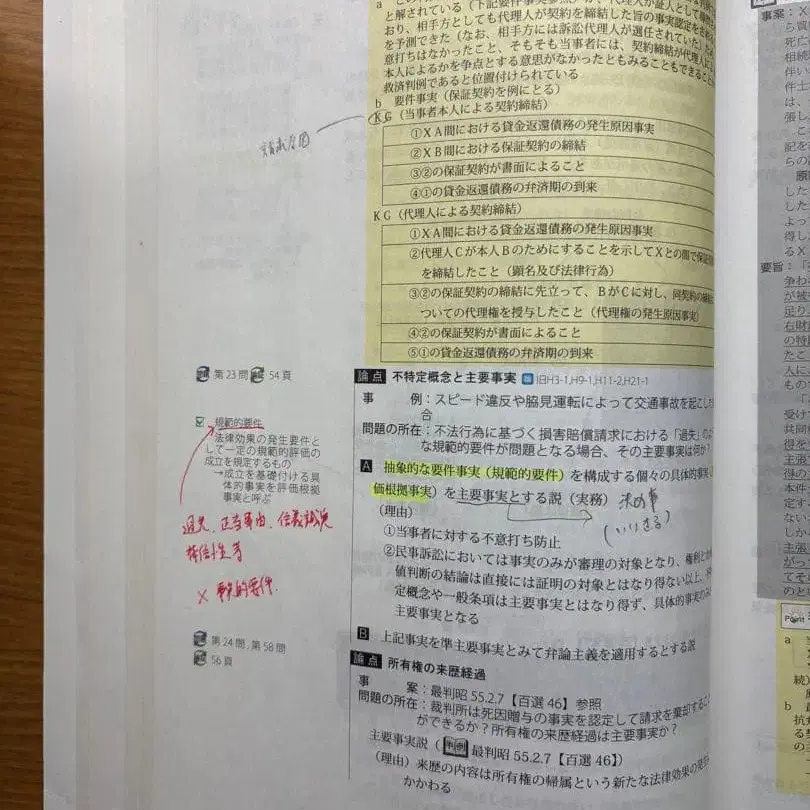 a
と解されている（下記要件事実参照）
おり、相手方としても代理人が契約を締結した旨の事実認定を
を予測できた（なお、相手方には訴訟代理人が選任されていた）
意打ちはなかったこと、そもそも当事者には、契約締結が代理人
本人によるかを争点とする意思がなかったともみることもできること
救済判例であると位置付けられている
b 要件事実（保証契約を例にとる）
KG（当事者本人による契約締結）
請求原因
①XA間における貸金返還債務の発生原因事実
②XB間における保証契約の締結
③②の保証契約が書面によること
④①の貸金返還債務の弁済期の到来
KG（代理人による契約締結）
①XA間における貸金返還債務の発生原因事実
②代理人Cが本人Bのためにすることを示してXとの間で保証
を締結したこと（顕名及び法律行為）
③②の保証契約の締結に先立って、BがCに対し、同契約の締結
ついての代理権を授与したこと（代理権の発生原因事実）
④②の保証契約が書面によること
⑤①の貸金返還債務の弁済期の到来
第23問 54頁
論点 不特定概念と主要事実 旧H3-1,H9-1,H11-2,H21-1
事例：スピード違反や脇見運転によって交通事故を起こした
合
問題の所在：不法行為に基づく損害賠償請求における「過失」のよ
な規範的要件が問題となる場合、その主要事実は何か
規範的要件
法律効果の発生要件と
して一定の規範的評価の
成立を規定するもの
→成立を基礎付ける具
体的事実を評価根拠
事実と呼ぶ
過失、正当事由、信義誠実
背信性等
A 抽象的な要件事実（規範的要件）を構成する個々の具体的事実
価根拠事実）を主要事実とする説（実務）
（理由）
①当事者に対する不意打ち防止
②民事訴訟においては事実のみが審理の対象となり、権利
値判断の結論は直接には証明の対象とはなり得ない以上、
定概念や一般条項は主要事実とはなり得ず、具体的事実のみ
主要事実となる
B 上記事実を準主要事実とみて弁論主義を適用するとする説
第24問、第58問
56頁
論点 所有権の来歴経過
事案：最判昭55.2.7【百選46】参照
問題の所在：裁判所は死因贈与の事実を認定して請求を棄却するこ
ができるか？所有権の来歴経過は主要事実か？
主要事実説（判例 最判昭55.2.7【百選46】）
（理由）来歴の内容は所有権の帰属という新たな法律効果の発
かかわる
事案：X
ら質
死亡
相続
伴い
件土
は、
張し
記を
らの
した
得し
るX
要旨：「
争わ
が被
足り
右財
の特
たこ
もの
受け
共同
得を
主張
得の
本件
定す
ない
主張
がっ
てそ
のと
Point
a
b